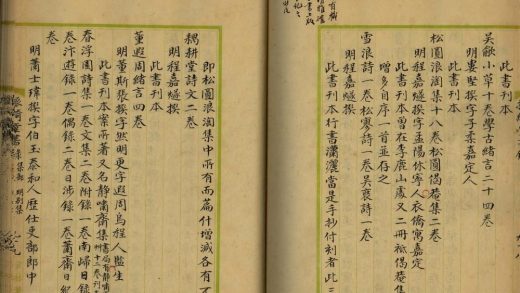 吳歈小草十卷學古緒言二十四卷
明婁堅撰字子柔嘉定人
此書刊本
松圓浪淘集十八卷松圓偈菴集二卷
明程嘉燧撰字孟陽休寧人衣僑寓嘉定
此書刊本曾在李鹿山處又二冊祗偈菴集
增多自序一首並存之
雪浪詩一卷松寥詩一卷吳裝詩一卷
明程嘉燧撰
此書刊本行書瀟灑當是手抄付刻者此三
即松圓浪淘集中所有而篇什增減各有不
耦耕堂詩文二卷
明程嘉燧撰
此書刊本
董遐周緒言四卷
明董斯張撰字然明更字遐周烏程人監生
此書刊本案所著又名靜嘯齋集
春浮園詩集一卷文集二卷附錄一卷南歸日錄一
卷汴遊錄一卷偶錄二卷日涉錄一卷蕭齋日紀
卷
明蕭士瑋撰字伯玉泰和人歷任吏部郎中